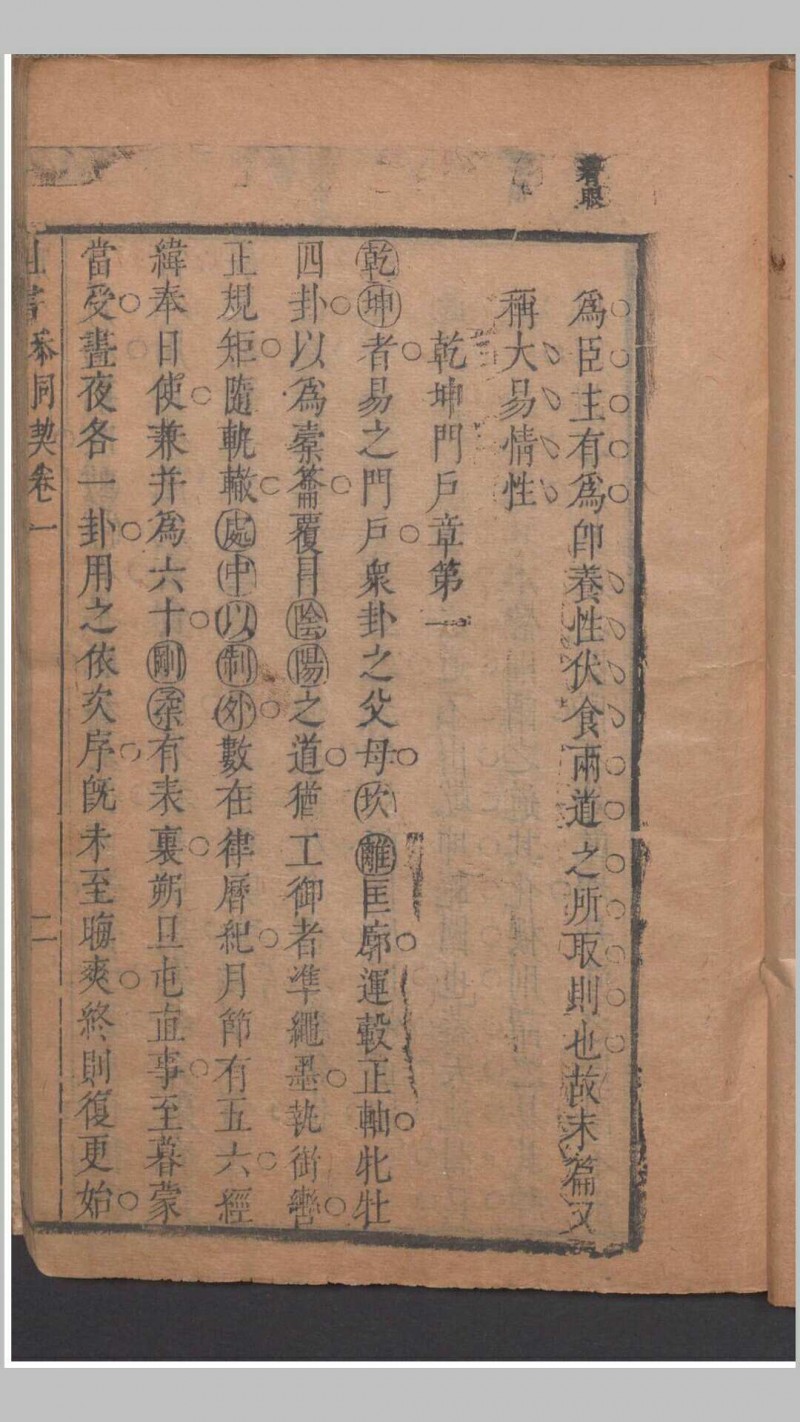 着眼
爲臣主有爲即養性伏食兩道之所取則也故末篇又
稱大易情性
乾坤門戶章第一
乾坤者易之門戶衆卦之父母坎離匡廓運轂正軸牝牡
四卦以爲橐籥覆冐陰陽之道猶工御者準繩墨執銜轡
正規矩隨軌轍處中以制外數在律曆紀月節有五六經
緯奉日使兼并爲六十剛柔有表裏朔旦屯直事至暮蒙
當受晝夜各一卦用之依次序旣未至晦爽終則復更始
參同契卷一
二